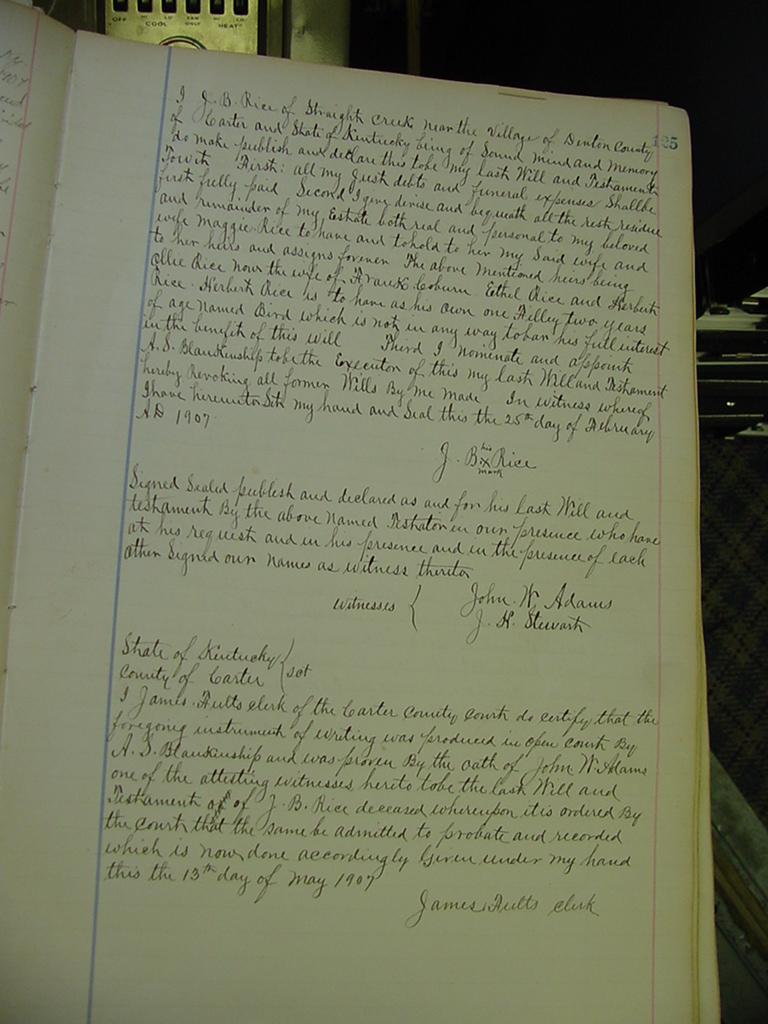 OFF HI LO FAN HI LO
COOL ONLY HEAT
185
I J. B. Rice of Straight Creek near the Village of Denton County
of Carter and State of Kentucky being of Sound mind and Memory
do make publish and declare this tobe my last Will and Testament
Towith First: all my Just debts and funeral expenses Shallbe
first fully paid Second I give devise and bequeath all the rest residue
and remainder of my Estate both real and personal to my beloved
wife Maggie Rice to have and tohold to her my Said wife and
to her heirs and assigns forever The above Mentioned heirs being
Ollie Rice Now the wife of Frank Coburn. Ethel Rice and Herbert
Rice. Herbert Rice is to have as his own one Filley two years
of age Named Bird which is not in any way tobar his full interest
in the benefit of this will Third I Nominate and appoint
A. S. Blankenship tobe the Executor of this my last Will and Testament
hereby Revoking all former Wills By Me Made In witness whereof
I have hereunto Set my hand and Seal this the 25th day of February
AD 1907.
J. B his X mark Rice
Signed Sealed publish and declared as and for his last Will and
testament By the above Named Testator in our presence who have
at his request and in his presence and in the presence of each
other Signed our Names as witness thereto
witnesses { John. W. Adams
J. H. Stewart
State of Kentucky
County of Carter { sct
I James. Fults clerk of the Carter County court do certify that the
foregoing instrument of writing was produced in open court By
A. S. Blankinship and was proven By the oath of John W. Adams
one of the attesting witnesses hereto tobe the last Will and
Testament of of J. B. Rice deceased whereupon it is ordered By
the court that the same be admitted to probate and recorded
which is now done accordingly Given under my hand
this the 13th day of May 1907
James Fults clerk